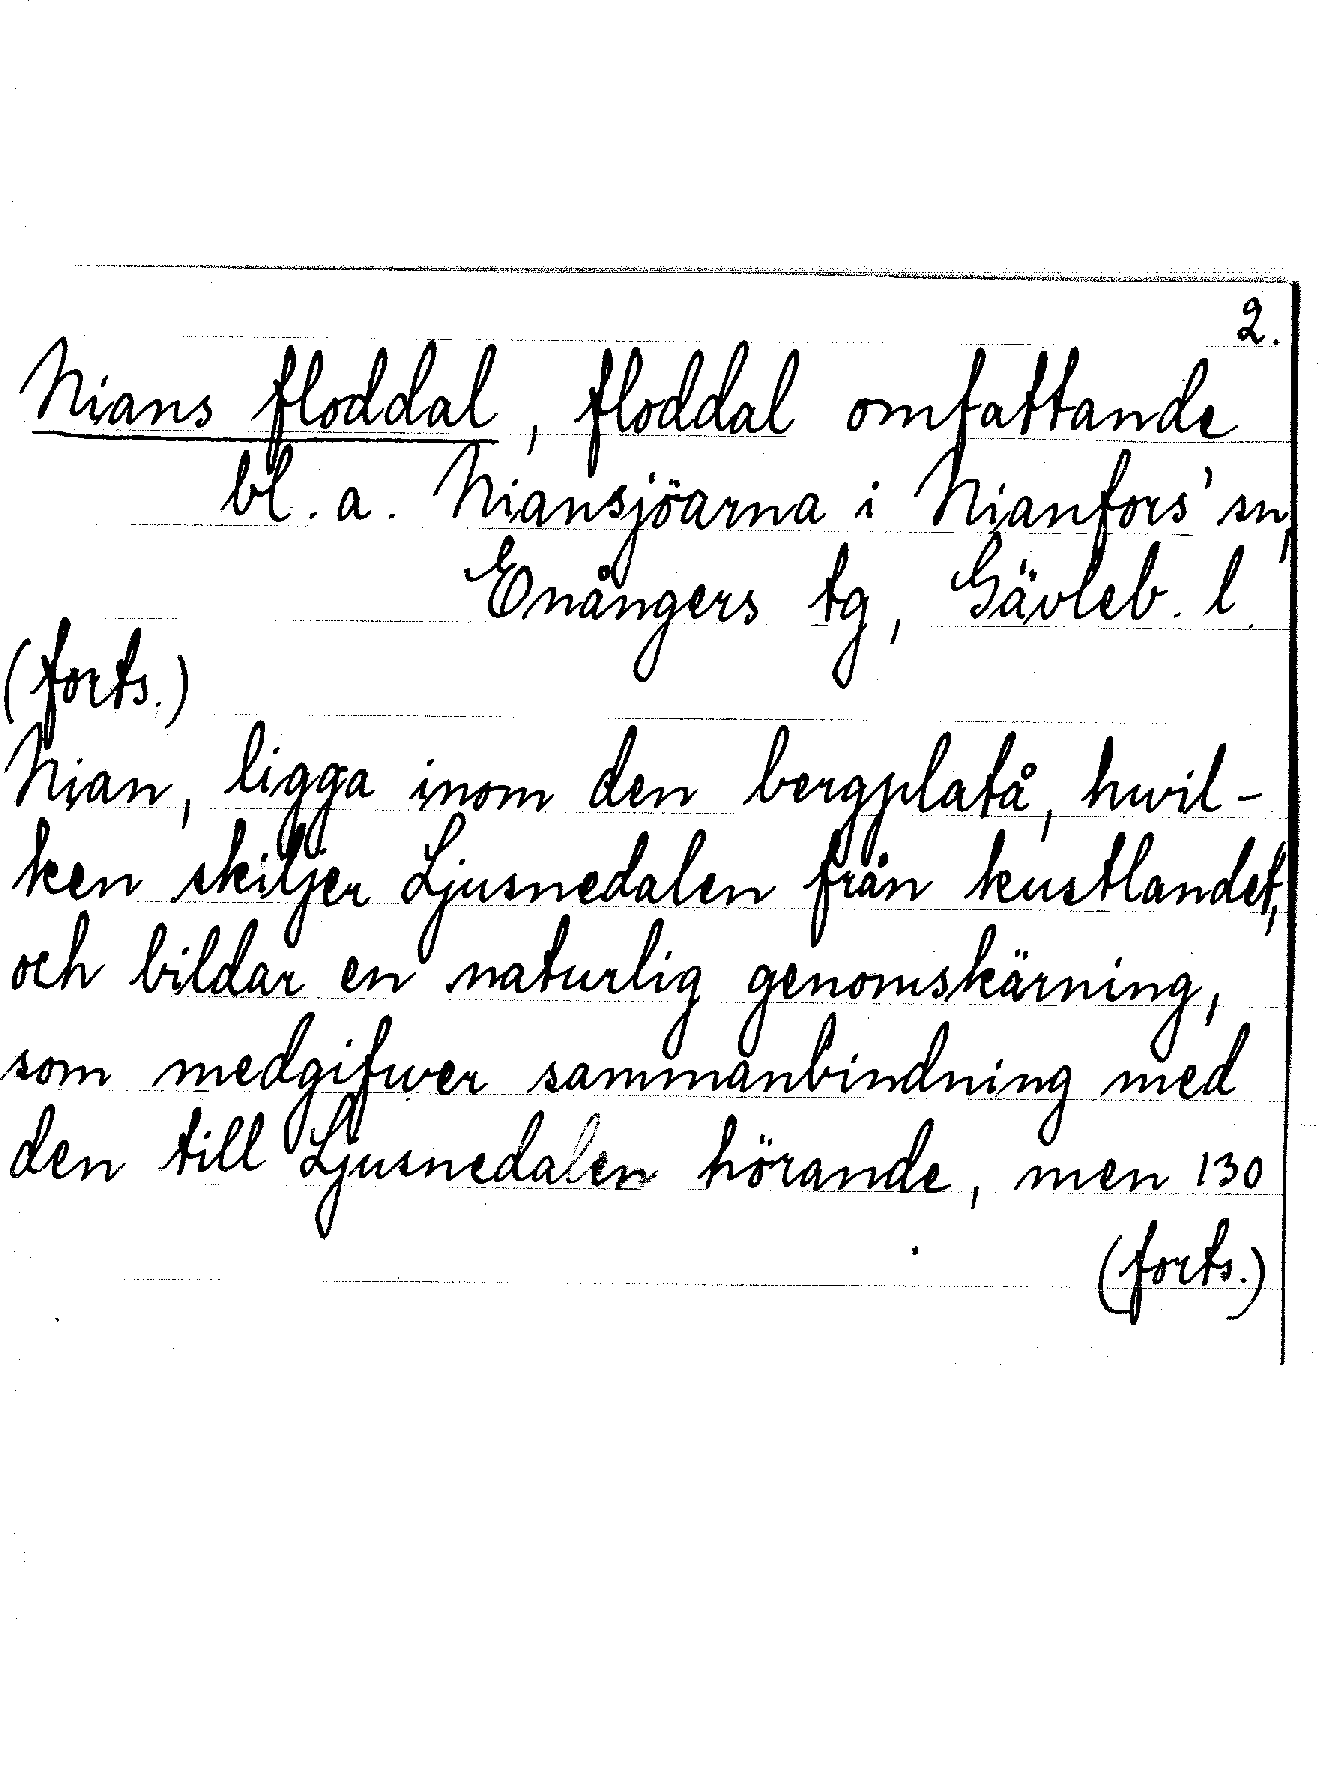 2.
Nians floddal, floddal omfattande
bl. a. Niansjöarna i Nianfors' sn,
Enångers tg, Gävleb. l.
(forts.)
Nian, ligga inom den bergplatå, hwil-
ken skiljer Ljusnedalen från kustlandet,
och bildar en naturlig genomskärning,
som medgifwer sammanbindning med
den till Ljusnedalen hörande, men 130
(forts.)